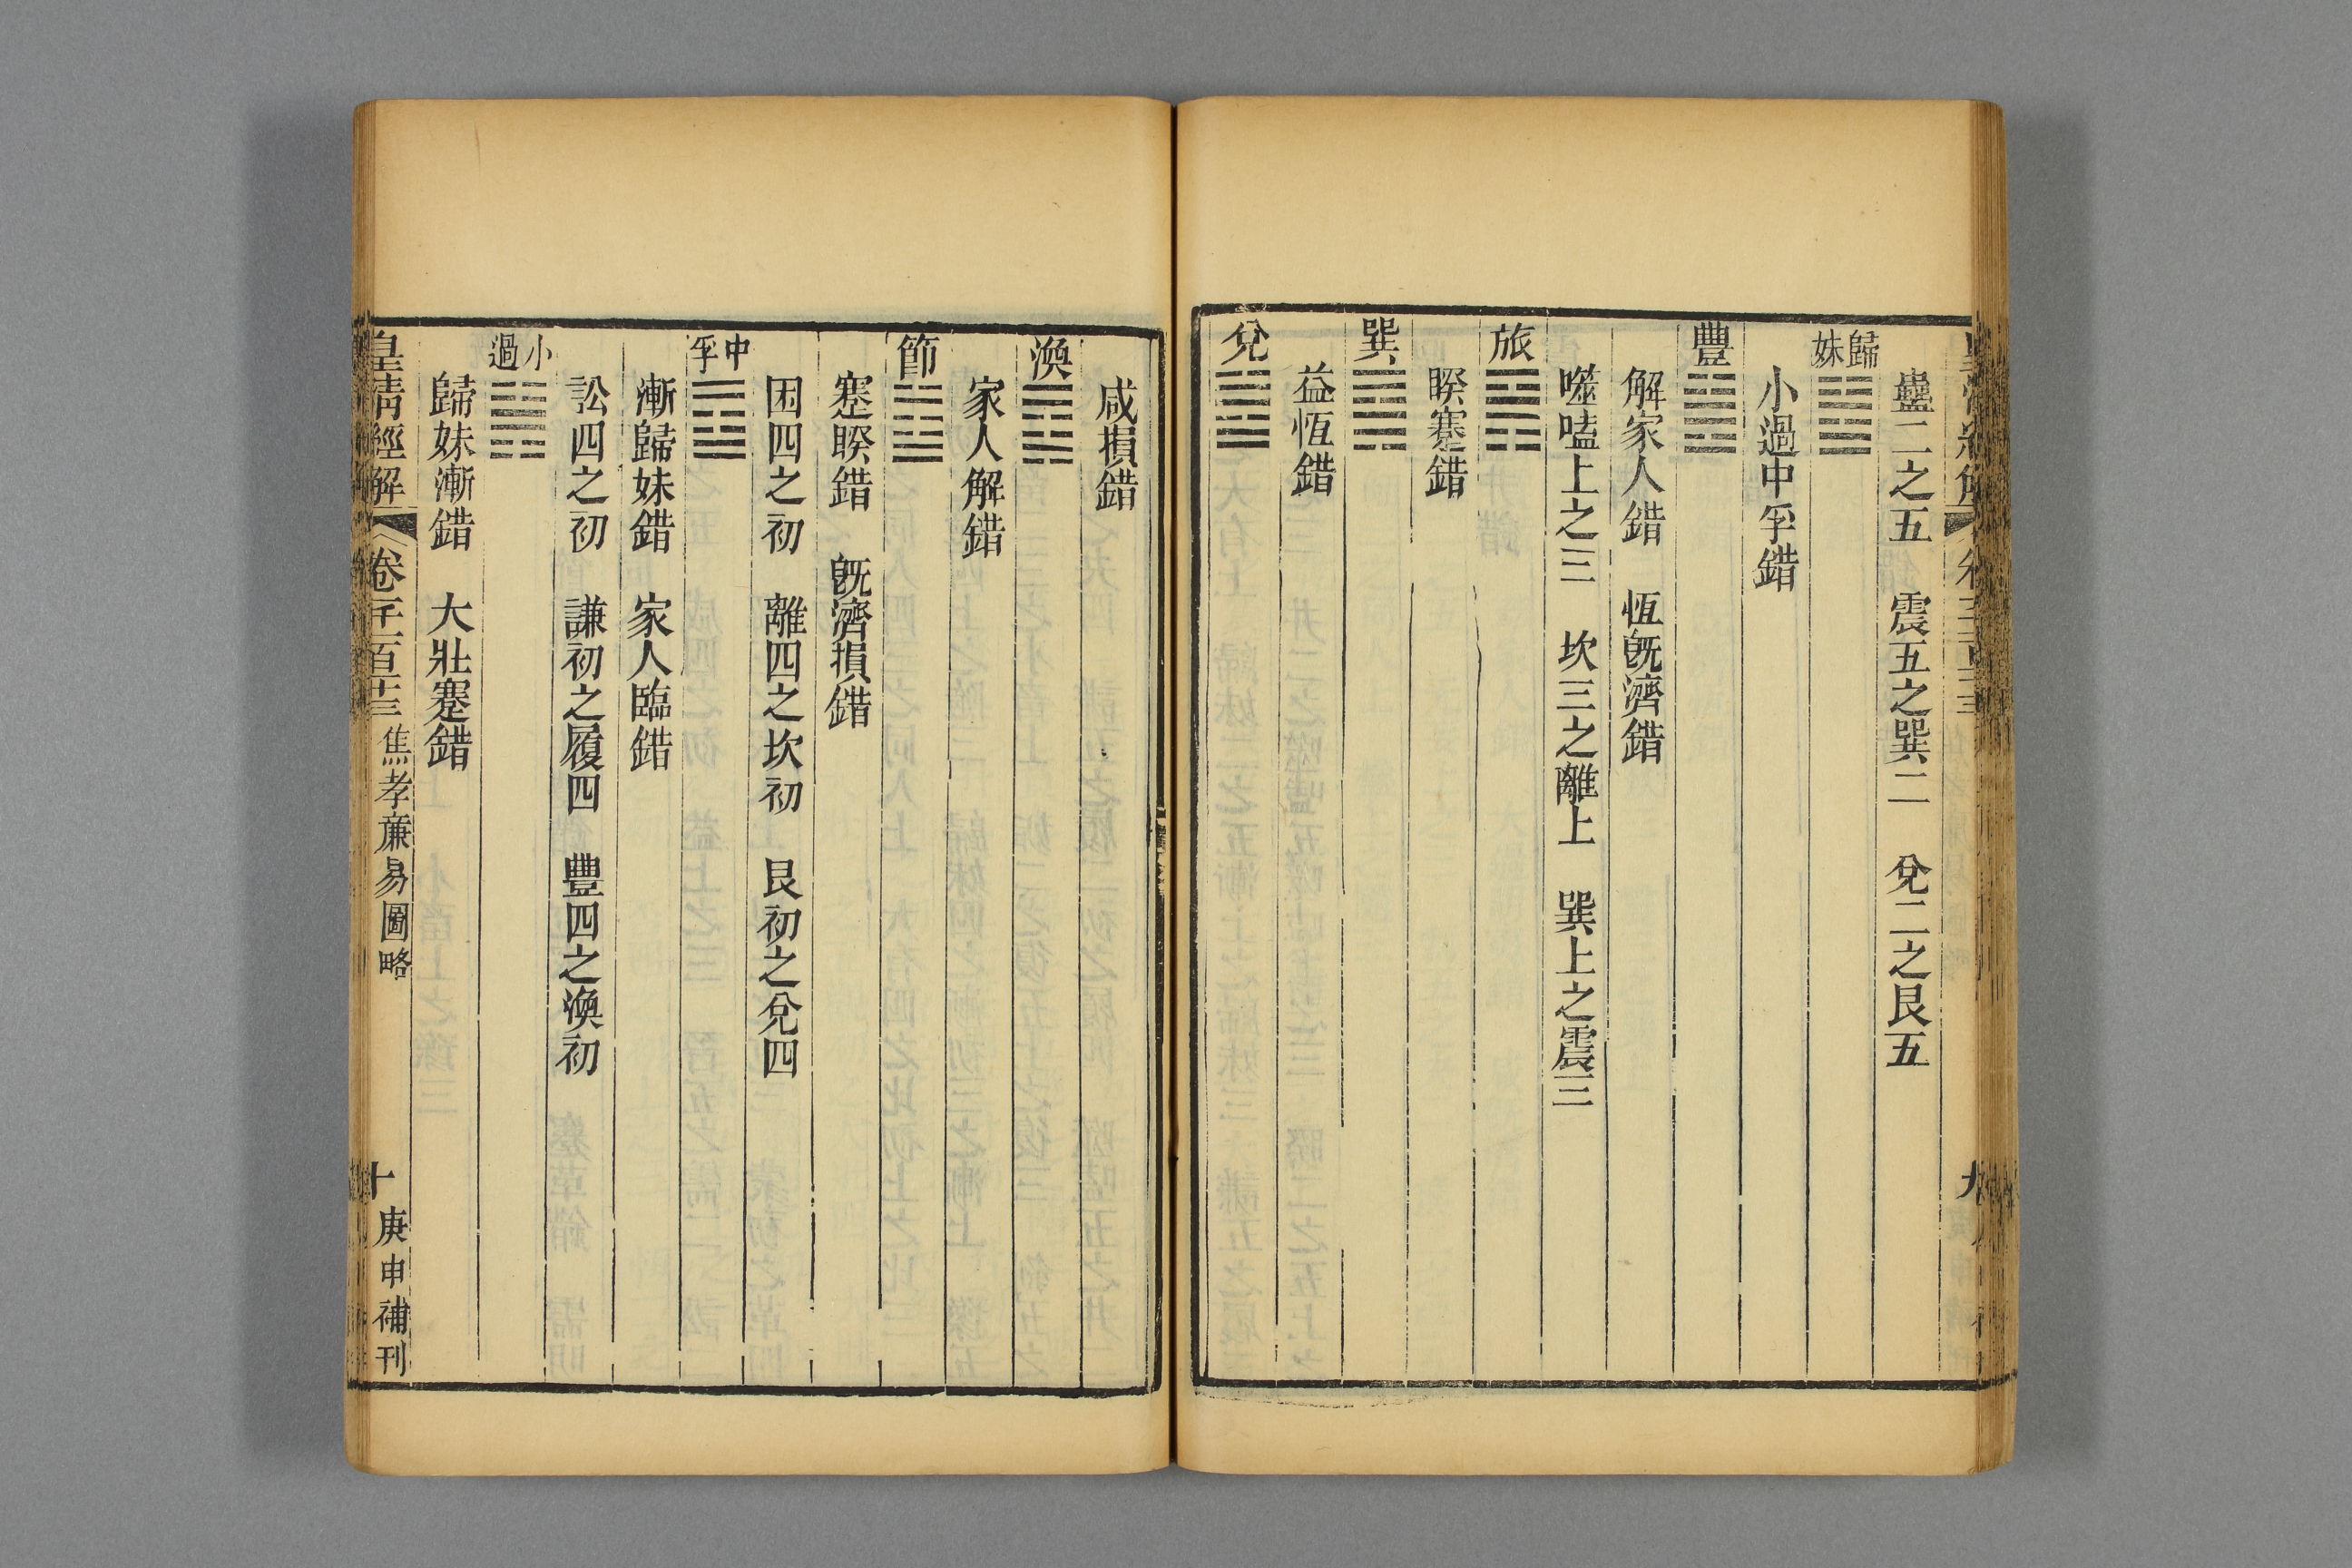 蠱二之五　震五之巽二　兌二之艮五
歸妹䷵
小過中孚錯
豐䷶
解家人錯　恆旣濟錯
噬嗑上之三　坎三之離上　巽上之震三
旅䷷
睽蹇錯
巽䷸
益恆錯
兌䷹
咸損錯
渙䷺
家人解錯
節䷻
蹇睽錯　旣濟損錯
困四之初　離四之坎初　艮初之兌四
中孚䷼
漸歸妹錯　家人臨錯
訟四之初　謙初之履四　豐四之渙初
小過䷽
歸妹漸錯　大壯蹇錯
皇淸經解　卷千一百十三　焦孝廉易圖略　十　庚申補刊